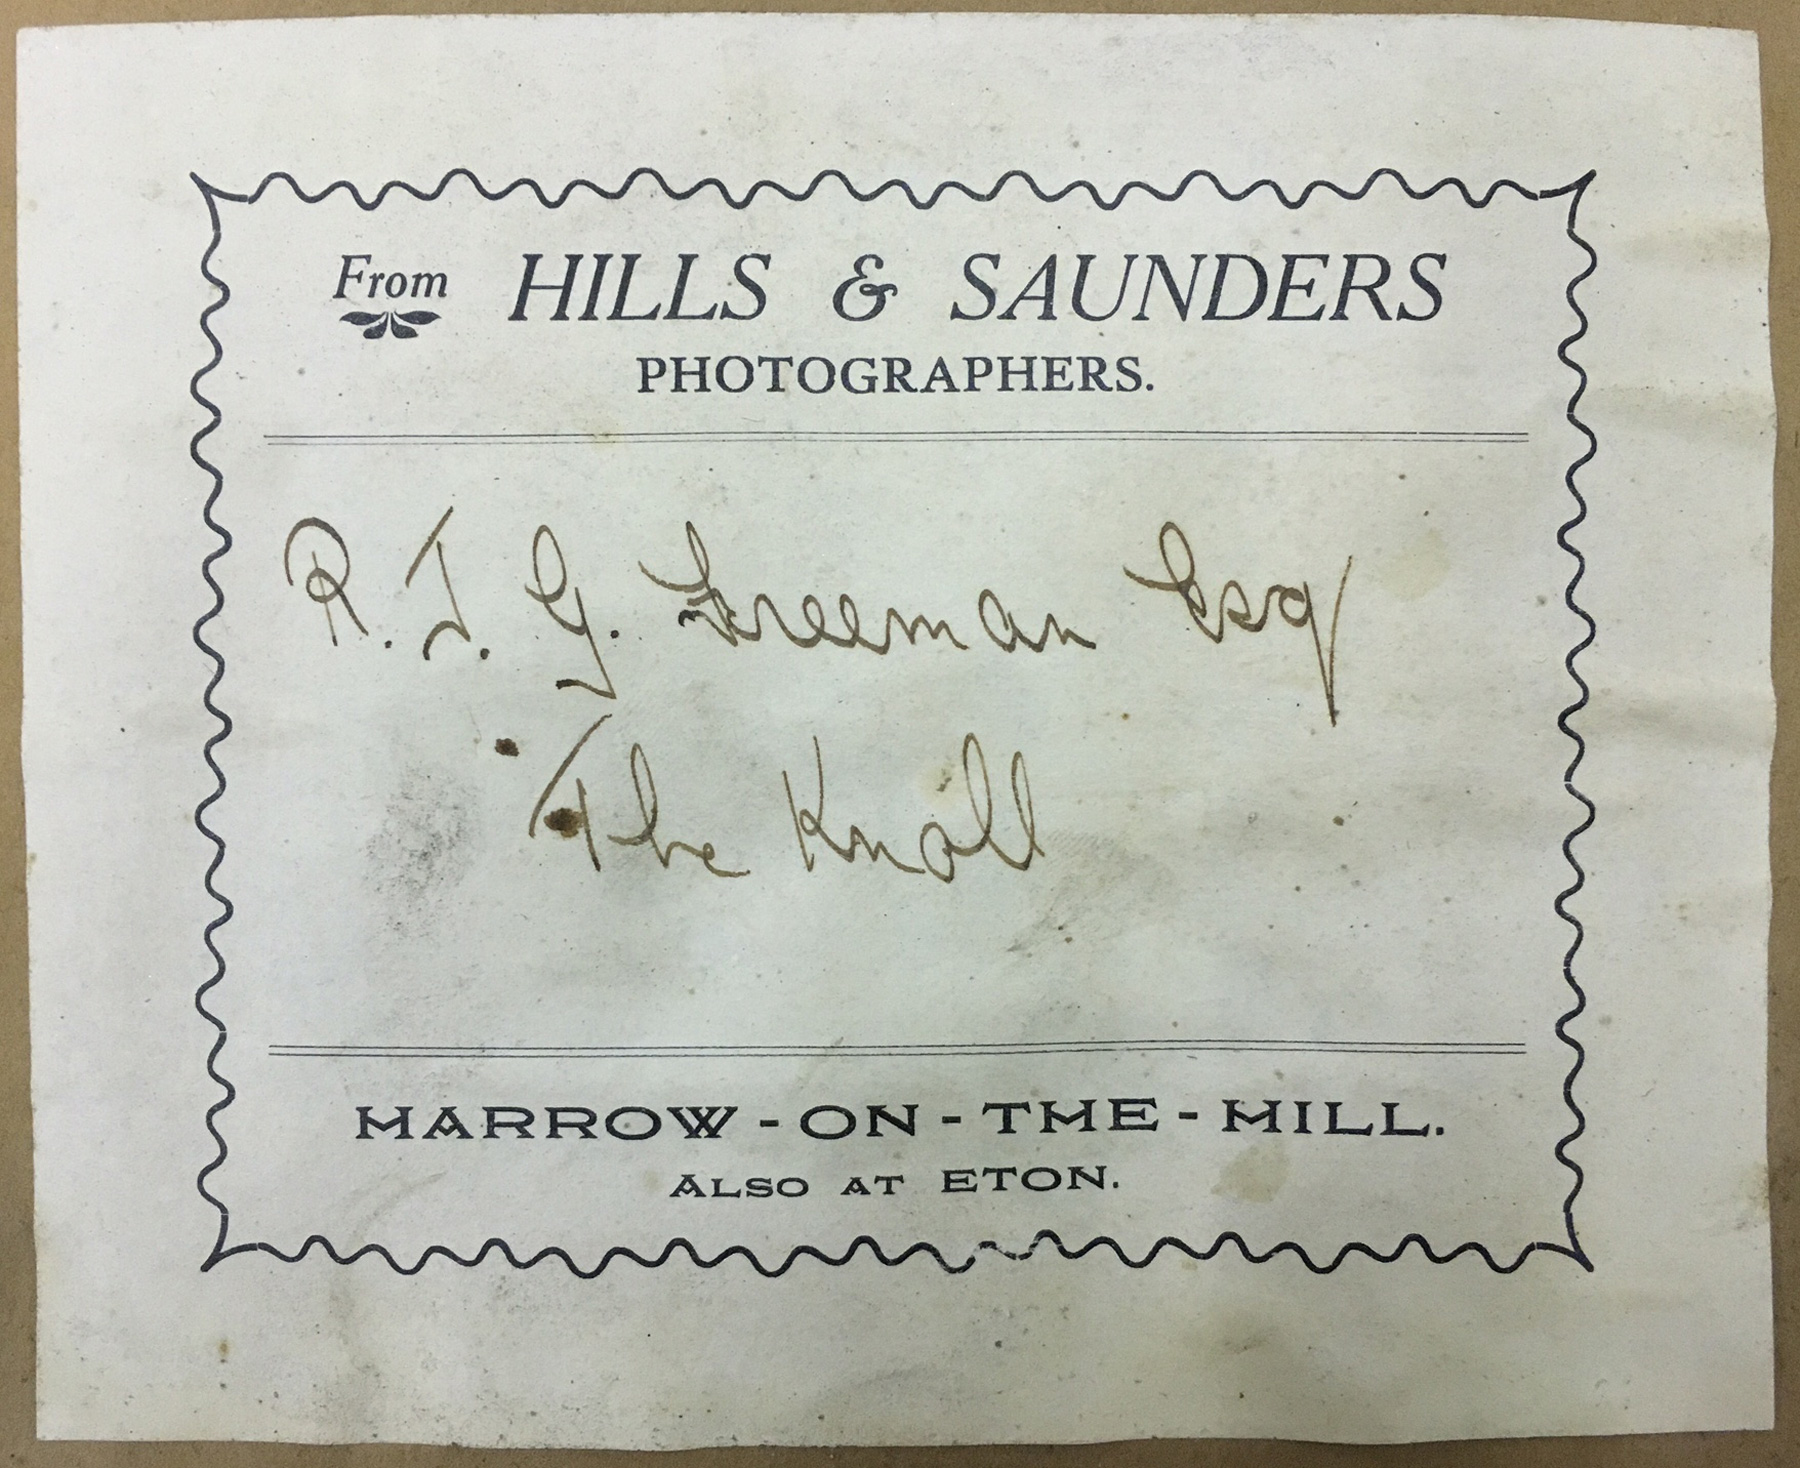 From HILLS & SAUNDERS
PHOTOGRAPHERS.
R. J. G. Freeman Esq
The Knoll
HARROW-ON-THE-HILL.
ALSO AT ETON.